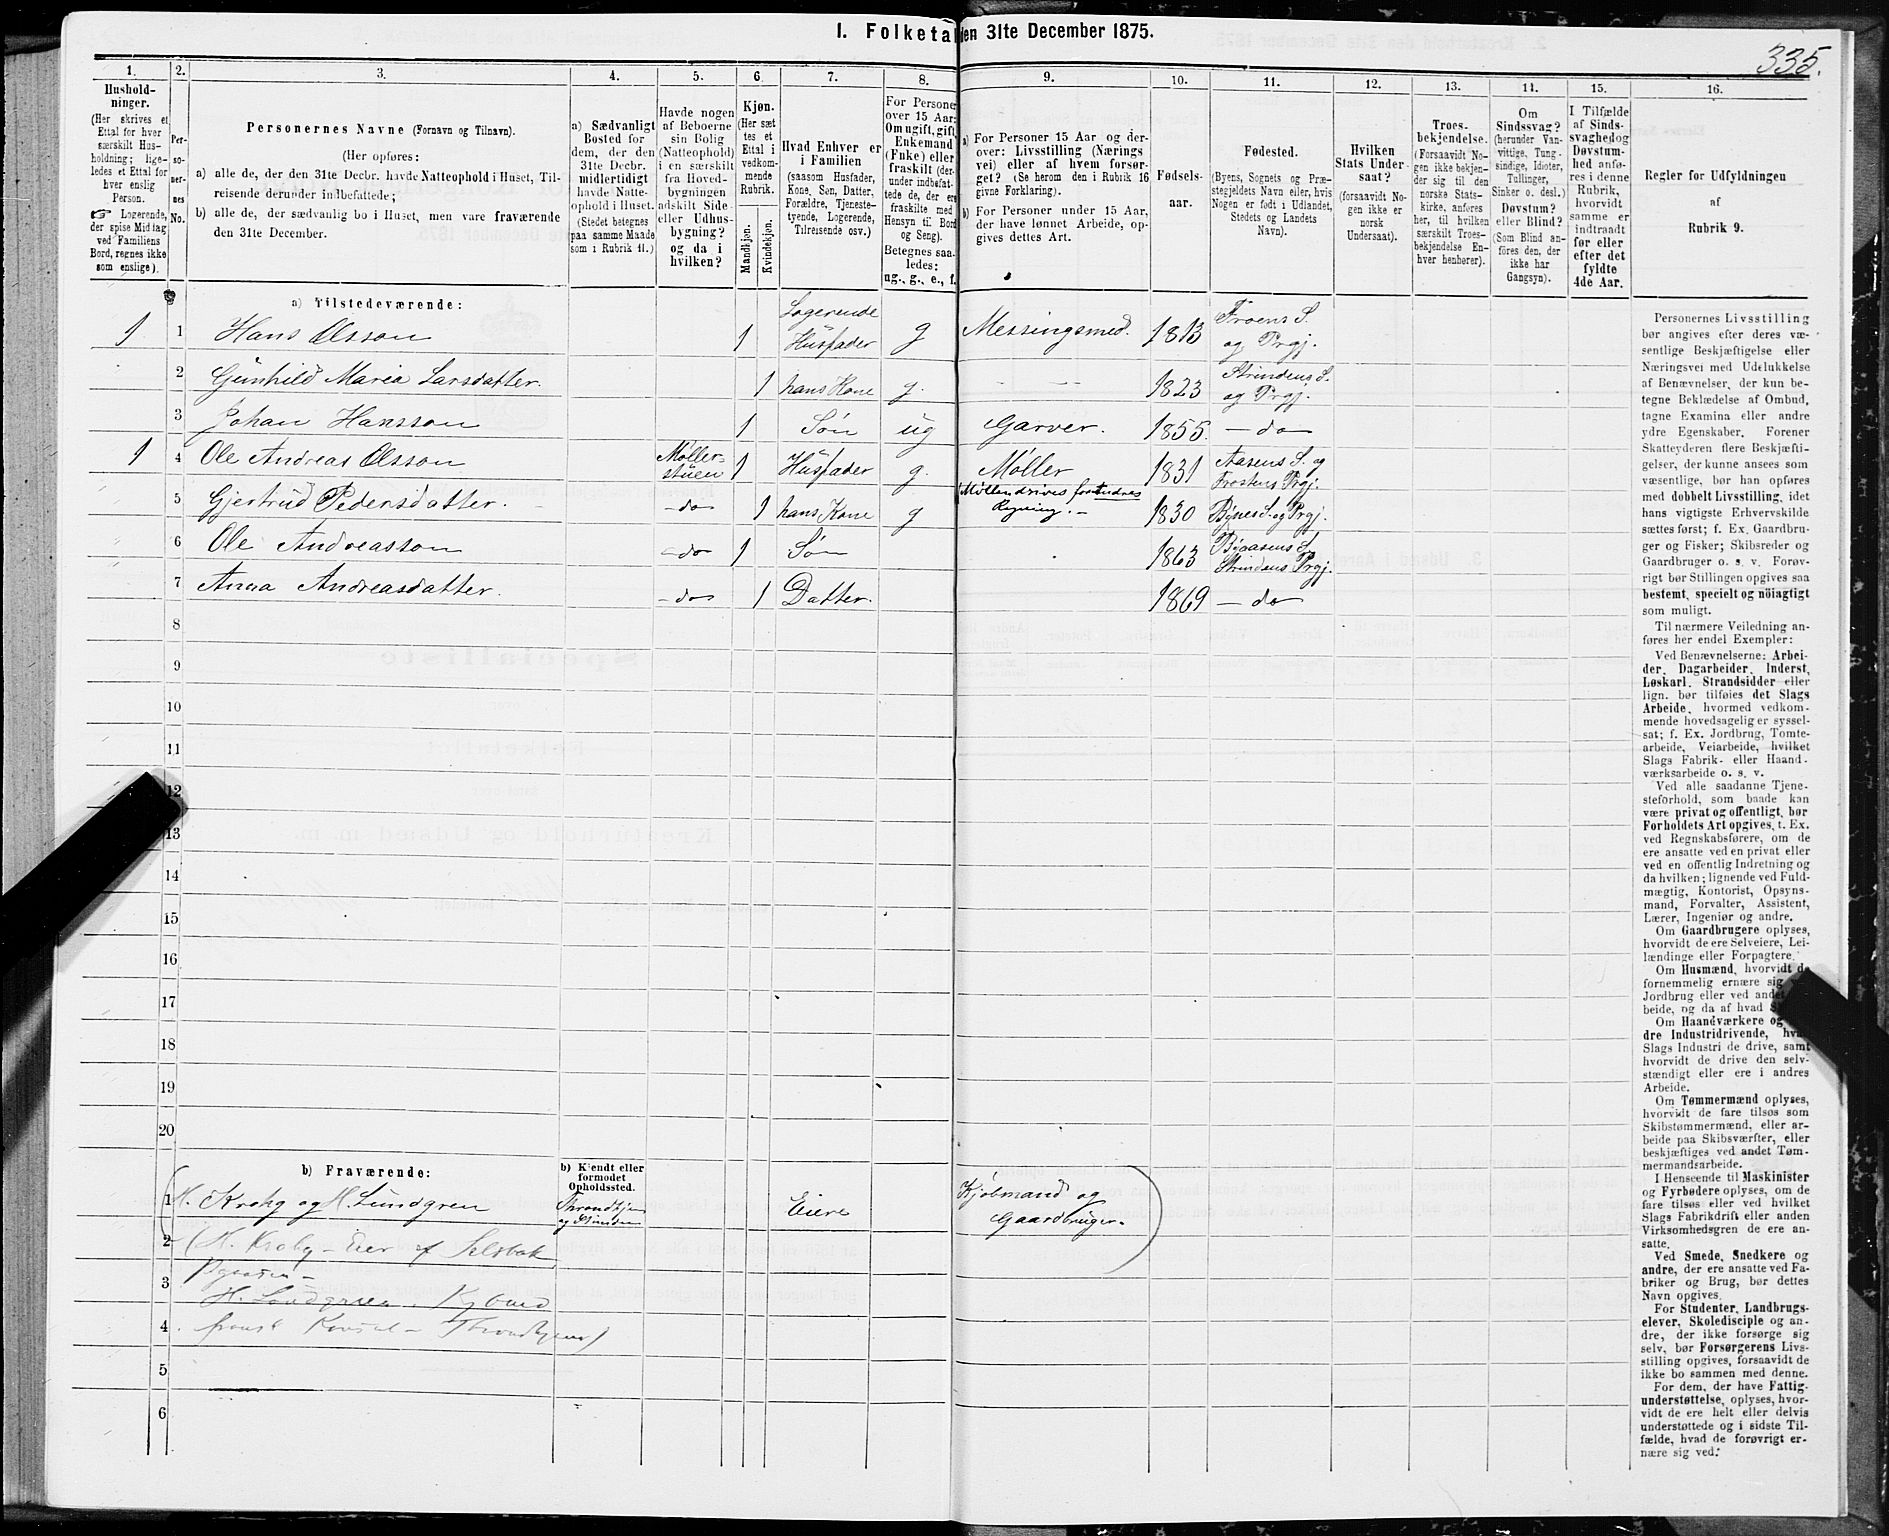 I. Folketal den 31te December 1875.
335.
1. 2. 3. 4. 5. 6. 7. 8. 9. 10. 11. 12. 13. 14. 15. 16.
Hushold-
ninger.
(Her skrives et
Ettal for hver
særskilt Hus-
holdning; lige-
ledes et Ettal for
hver enslig
Person.
☞ Logerende,
der spise Middag
ved Familiens
Bord, regnes ikke
som enslige).
Per-
so-
ner-
nes
No.
Personernes Navne (Fornavn og Tilnavn).
(Her opføres:
a) alle de, der den 31te Decbr. havde Natteophold i Huset, Til-
reisende derunder indbefattede;
b) alle de, der sædvanlig bo i Huset, men vare fraværende
den 31te December.
a) Sædvanligt
Bosted for
dem, der den
31te Decbr.
midlertidigt
havde Natte-
ophold i Huset.
(Stedet betegnes
paa samme Maade
som i Rubrik 11.)
Havde nogen
af Beboerne
sin Bolig
(Natteophold)
i en særskilt
fra Hoved-
bygningen
adskilt Side-
eller Udhus-
bygning?
og da i
hvilken?
Kjøn.
(Her sæt-
tes et
Ettal i
vedkom-
mende
Rubrik.
Mandkjøn.
Kvindekjøn.
Hvad Enhver er
i Familien
(saasom Husfader,
Kone, Søn, Datter,
Forældre, Tjeneste-
tyende, Logerende,
Tilreisende osv.)
For Personer
over 15 Aar:
Om ugift, gift,
Enkemand
(Enke) eller
fraskilt (der-
under indbefat-
tede de, der ere
fraskilte med
Hensyn til Bord
og Seng).
Betegnes saa-
ledes:
ug., g., e., f.
a) For Personer 15 Aar og der-
over: Livsstilling (Nærings-
vei) eller af hvem forsør-
get? (Se herom den i Rubrik 16
givne Forklaring).
b) For Personer under 15 Aar,
der have lønnet Arbeide, op-
gives dettes Art.
Fødsels-
aar.
Fødested.
(Byens, Sognets og Præ-
stegjeldets Navn eller, hvis
Nogen er født i Udlandet,
Stedets og Landets
Navn).
Hvilken
Stats Under-
saat?
(forsaavidt No-
gen ikke er
norsk
Undersaat).
Troes-
bekjendelse.
(Forsaavidt No-
gen ikke bekjen-
der sig til den
norske Stats-
kirke, anføres
her, til hvilken
særskilt Troes-
bekjendelse En-
hver henhører).
Om
Sindssvag?
(herunder Van-
vittige, Tung-
sindige, Idioter,
Tullinger,
Sinker o. desl.)
Døvstum?
eller Blind?
(Som Blind an-
føres den, der
ikke har
Gangsyn).
I Tilfælde
af Sinds-
svaghed og
Døvstum-
hed anfø-
res i denne
Rubrik,
hvorvidt
samme er
indtraadt
før eller
efter det
fyldte
4de Aar.
Regler for Udfyldningen
af
Rubrik 9.
a) Tilstedeværende:
1 1 Hans Olsson 1 Logerende Husfader g Messingsmed. 1813 Froens S. og Prgj.
2 Gunhild Maria Larsdatter. 1 hans Kone g. - - 1823 Strindens S. og Prgj.
3 Johan Hansson 1 Søn ug Garver. 1855. - do
1 4 Ole Andreas Olsson Møller-stuen 1 Husfader g. Møller 1831 Aasens S. og Frostens Prgj.
5 Gjertrud Pedersdatter. - do 1 hans Kone g (Møllen drives for Andres Regning. - 1830 Bynes S. og Prgj.
6 Ole Andreasson - do 1 Søn 1863 Byaasens S. Strindens Prgj.
7 Anna Andreasdatter. - do 1 Datter. 1869 - do
8
9
10
11
12
13
14
15
16
17
18
19
20
b) Fraværende:
b) Kjendt eller
formodet
Opholdssted.
1 H. Krohg og H. Lundgren Throndhjem og Strinden Eiere Kjøbmand og Gaardbruger.
2 (H. Krohg - Eier af Selsbak
Byaasen -
3 H. Lundgreen. Kjbmd
4 fransk Konsul - Throndhjem)
5
6
Personernes Livsstilling
bør angives efter deres væ-
sentlige Beskjæftigelse eller
Næringsvei med Udelukkelse
af Benævnelser, der kun be-
tegne Beklædelse af Ombud,
tagne Examina eller andre
ydre Egenskaber. Forener
Skatteyderen flere Beskjæfti-
gelser, der kunne ansees som
væsentlige, bør han opføres
med dobbelt Livsstilling, idet
hans vigtigste Erhvervskilde
sættes først; f. Ex. Gaardbru-
ger og Fisker; Skibsreder og
Gaardbruger o. s. v. Forøv-
rigt bør Stillingen opgives saa
bestemt, specielt og nöiagtigt
som muligt.
Til nærmere Veiledning an-
føres her endel Exempler:
Ved Benævnelserne: Arbei-
der, Dagarbeider, Inderst,
Løskarl, Strandsidder eller
lign. bør tilføies det Slags
Arbeide, hvormed vedkom-
mende hovedsagelig er syssel-
sat; f. Ex. Jordbrug, Tomte-
arbeide, Veiarbeide, hvilket
Slags Fabrik- eller Haand-
værksarbeide o. s. v.
Ved alle saadanne Tjene-
steforhold, som baade kan
være privat og offentligt, bør
Forholdets Art opgives, t. Ex.
ved Regnskabsførere, om de
ere ansatte ved en privat eller
ved en offentlig Indretning og
da hvilken; lignende ved Fuld-
mægtig, Kontorist, Opsyns-
mand, Forvalter, Assistent,
Lærer, Ingeniør og andre.
Om Gaardbrugere oplyses,
hvorvidt de ere Selveiere, Lei-
lændinge eller Forpagtere.
Om Husmænd, hvorvidt de
fornemmelig ernære sig
Jordbrug eller ved andet
beide, og da af hvad
Om Haandværkere og
dre Industridrivende,
Slags Industri de drive, samt
hvorvidt de drive den selv-
stændigt eller ere i andres
Arbeide.
Om Tømmermænd oplyses,
hvorvidt de fare tilsøs som
Skibstømmermænd, eller ar-
beide paa Skibsværfter, eller
beskjæftiges ved andet Tøm-
mermandsarbeide.
I Henseende til Maskinister
og Fyrbødere oplyses, om de
fare tilsøs eller ved hvilket
Slags Fabrikdrift eller anden
Virksomhedsgren de ere an-
satte.
Ved Smede, Snedkere og
andre, der ere ansatte ved Fa-
briker og Brug, bør dettes
Navn opgives.
For Studenter, Landbrugs-
elever, Skoledisciple og an-
dre, der ikke forsørge sig
selv, bør Forsørgerens Livs-
stilling opgives, forsaavidt de
ikke bo sammen med denne.
For dem, der have Fattig-
understøttelse, oplyses, hvor-
vidt de ere helt eller delvis
understøttede og i sidste Til-
fælde, hvad de forøvrigt er-
nære sig ved.